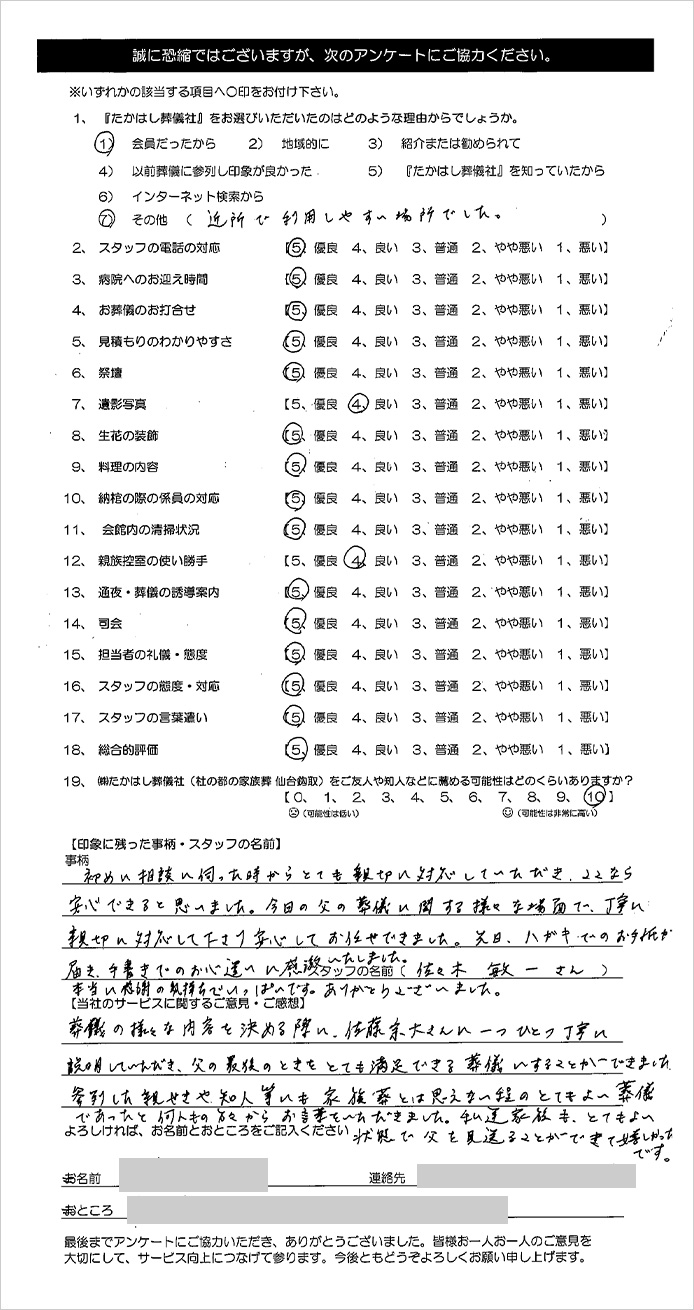 誠に恐縮ではございますが、次のアンケートにご協力ください。
※いずれかの該当する項目へ〇印をお付け下さい。
1、『たかはし葬儀社』をお選びいただいたのはどのような理由からでしょうか。
1) 会員だったから 2) 地域的に 3) 紹介または勧められて
4) 以前葬儀に参列し印象が良かった 5) 『たかはし葬儀社』を知っていたから
6) インターネット検索から
7) その他 ( 近所で利用しやすい場所でした。 )
2、スタッフの電話の対応 【5、優良 4、良い 3、普通 2、やや悪い 1、悪い】
3、病院へのお迎え時間 【5、優良 4、良い 3、普通 2、やや悪い 1、悪い】
4、お葬儀のお打合せ 【5、優良 4、良い 3、普通 2、やや悪い 1、悪い】
5、見積もりのわかりやすさ 【5、優良 4、良い 3、普通 2、やや悪い 1、悪い】
6、祭壇 【5、優良 4、良い 3、普通 2、やや悪い 1、悪い】
7、遺影写真 【5、優良 4、良い 3、普通 2、やや悪い 1、悪い】
8、生花の装飾 【5、優良 4、良い 3、普通 2、やや悪い 1、悪い】
9、料理の内容 【5、優良 4、良い 3、普通 2、やや悪い 1、悪い】
10、納棺の際の係員の対応 【5、優良 4、良い 3、普通 2、やや悪い 1、悪い】
11、会館内の清掃状況 【5、優良 4、良い 3、普通 2、やや悪い 1、悪い】
12、親族控室の使い勝手 【5、優良 4、良い 3、普通 2、やや悪い 1、悪い】
13、通夜・葬儀の誘導案内 【5、優良 4、良い 3、普通 2、やや悪い 1、悪い】
14、司会 【5、優良 4、良い 3、普通 2、やや悪い 1、悪い】
15、担当者の礼儀・態度 【5、優良 4、良い 3、普通 2、やや悪い 1、悪い】
16、スタッフの態度・対応 【5、優良 4、良い 3、普通 2、やや悪い 1、悪い】
17、スタッフの言葉遣い 【5、優良 4、良い 3、普通 2、やや悪い 1、悪い】
18、総合的評価 【5、優良 4、良い 3、普通 2、やや悪い 1、悪い】
19、㈱たかはし葬儀社（杜の都の家族葬 仙台鈎取）をご友人や知人などに薦める可能性はどのくらいありますか？
【 0、1、2、3、4、5、6、7、8、9、10 】
(可能性は低い) (可能性は非常に高い)
【印象に残った事柄・スタッフの名前】
事柄
初めに相談に伺った時からとても親切に対応していただき、ここなら
安心できると思いました。今回の父の葬儀に関する様々な場面で、丁寧に
親切に対応して下さり安心してお任せできました。先日、ハガキでのお手紙が
届き、手書きでのお心遣いに感激いたしました。
スタッフの名前 ( 佐々木 敏一さん )
本当に感謝の気持ちでいっぱいです。ありがとうございました。
【当社のサービスに関するご意見・ご感想】
葬儀の様々な内容を決める際に、佐藤宗大さんに一つひとつ丁寧に
説明していただき、父の最後のときをとても満足できる葬儀にすることができました。
参列した親せきや知人等にも家族葬とは思えない程のとてもよい葬儀
であったと何人もの方々からお言葉をいただきました。私達家族も、とてもよい
よろしければ、お名前とおところをご記入ください
状態で父を見送ることができて嬉しかった
です。
お名前 連絡先
おところ
最後までアンケートにご協力いただき、ありがとうございました。皆様お一人お一人のご意見を
大切にして、サービス向上につなげて参ります。今後ともどうぞよろしくお願い申し上げます。